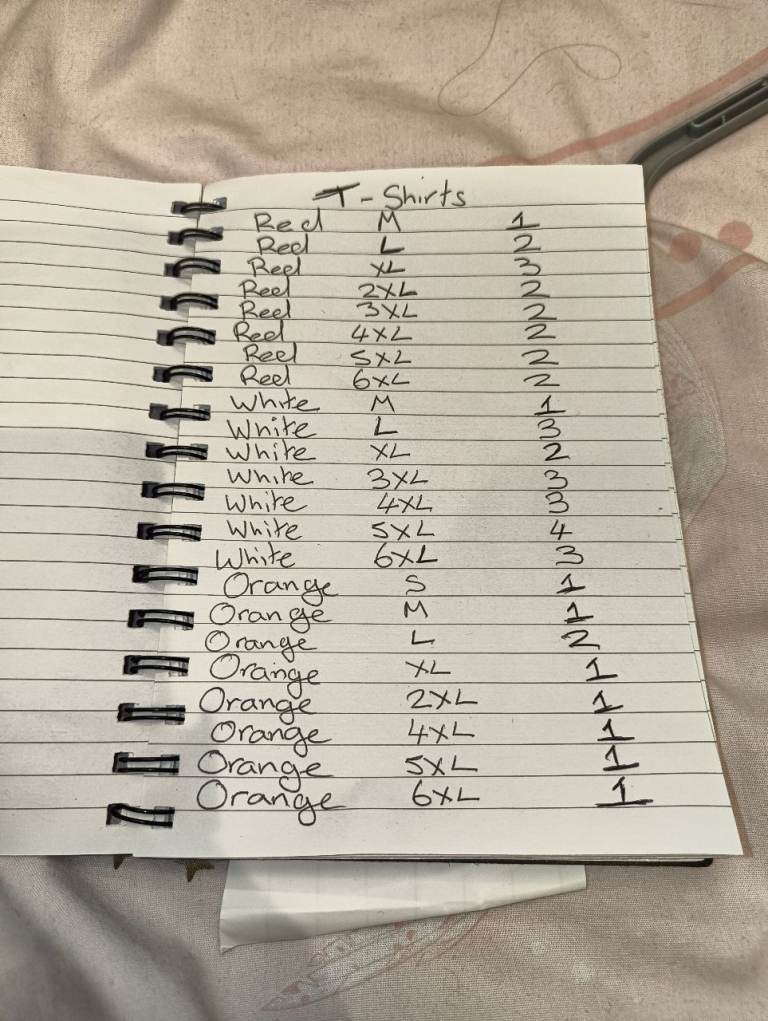 T-Shirts
Red M 1
Red L 2
Red XL 3
Red 2XL 2
Red 3XL 2
Red 4XL 2
Red 5XL 2
Red 6XL 2
White M 1
White L 3
White XL 2
White 3XL 3
White 4XL 3
White 5XL 4
White 6XL 3
Orange S 1
Orange M 1
Orange L 2
Orange XL 1
Orange 2XL 1
Orange 4XL 1
Orange 5XL 1
Orange 6XL 1